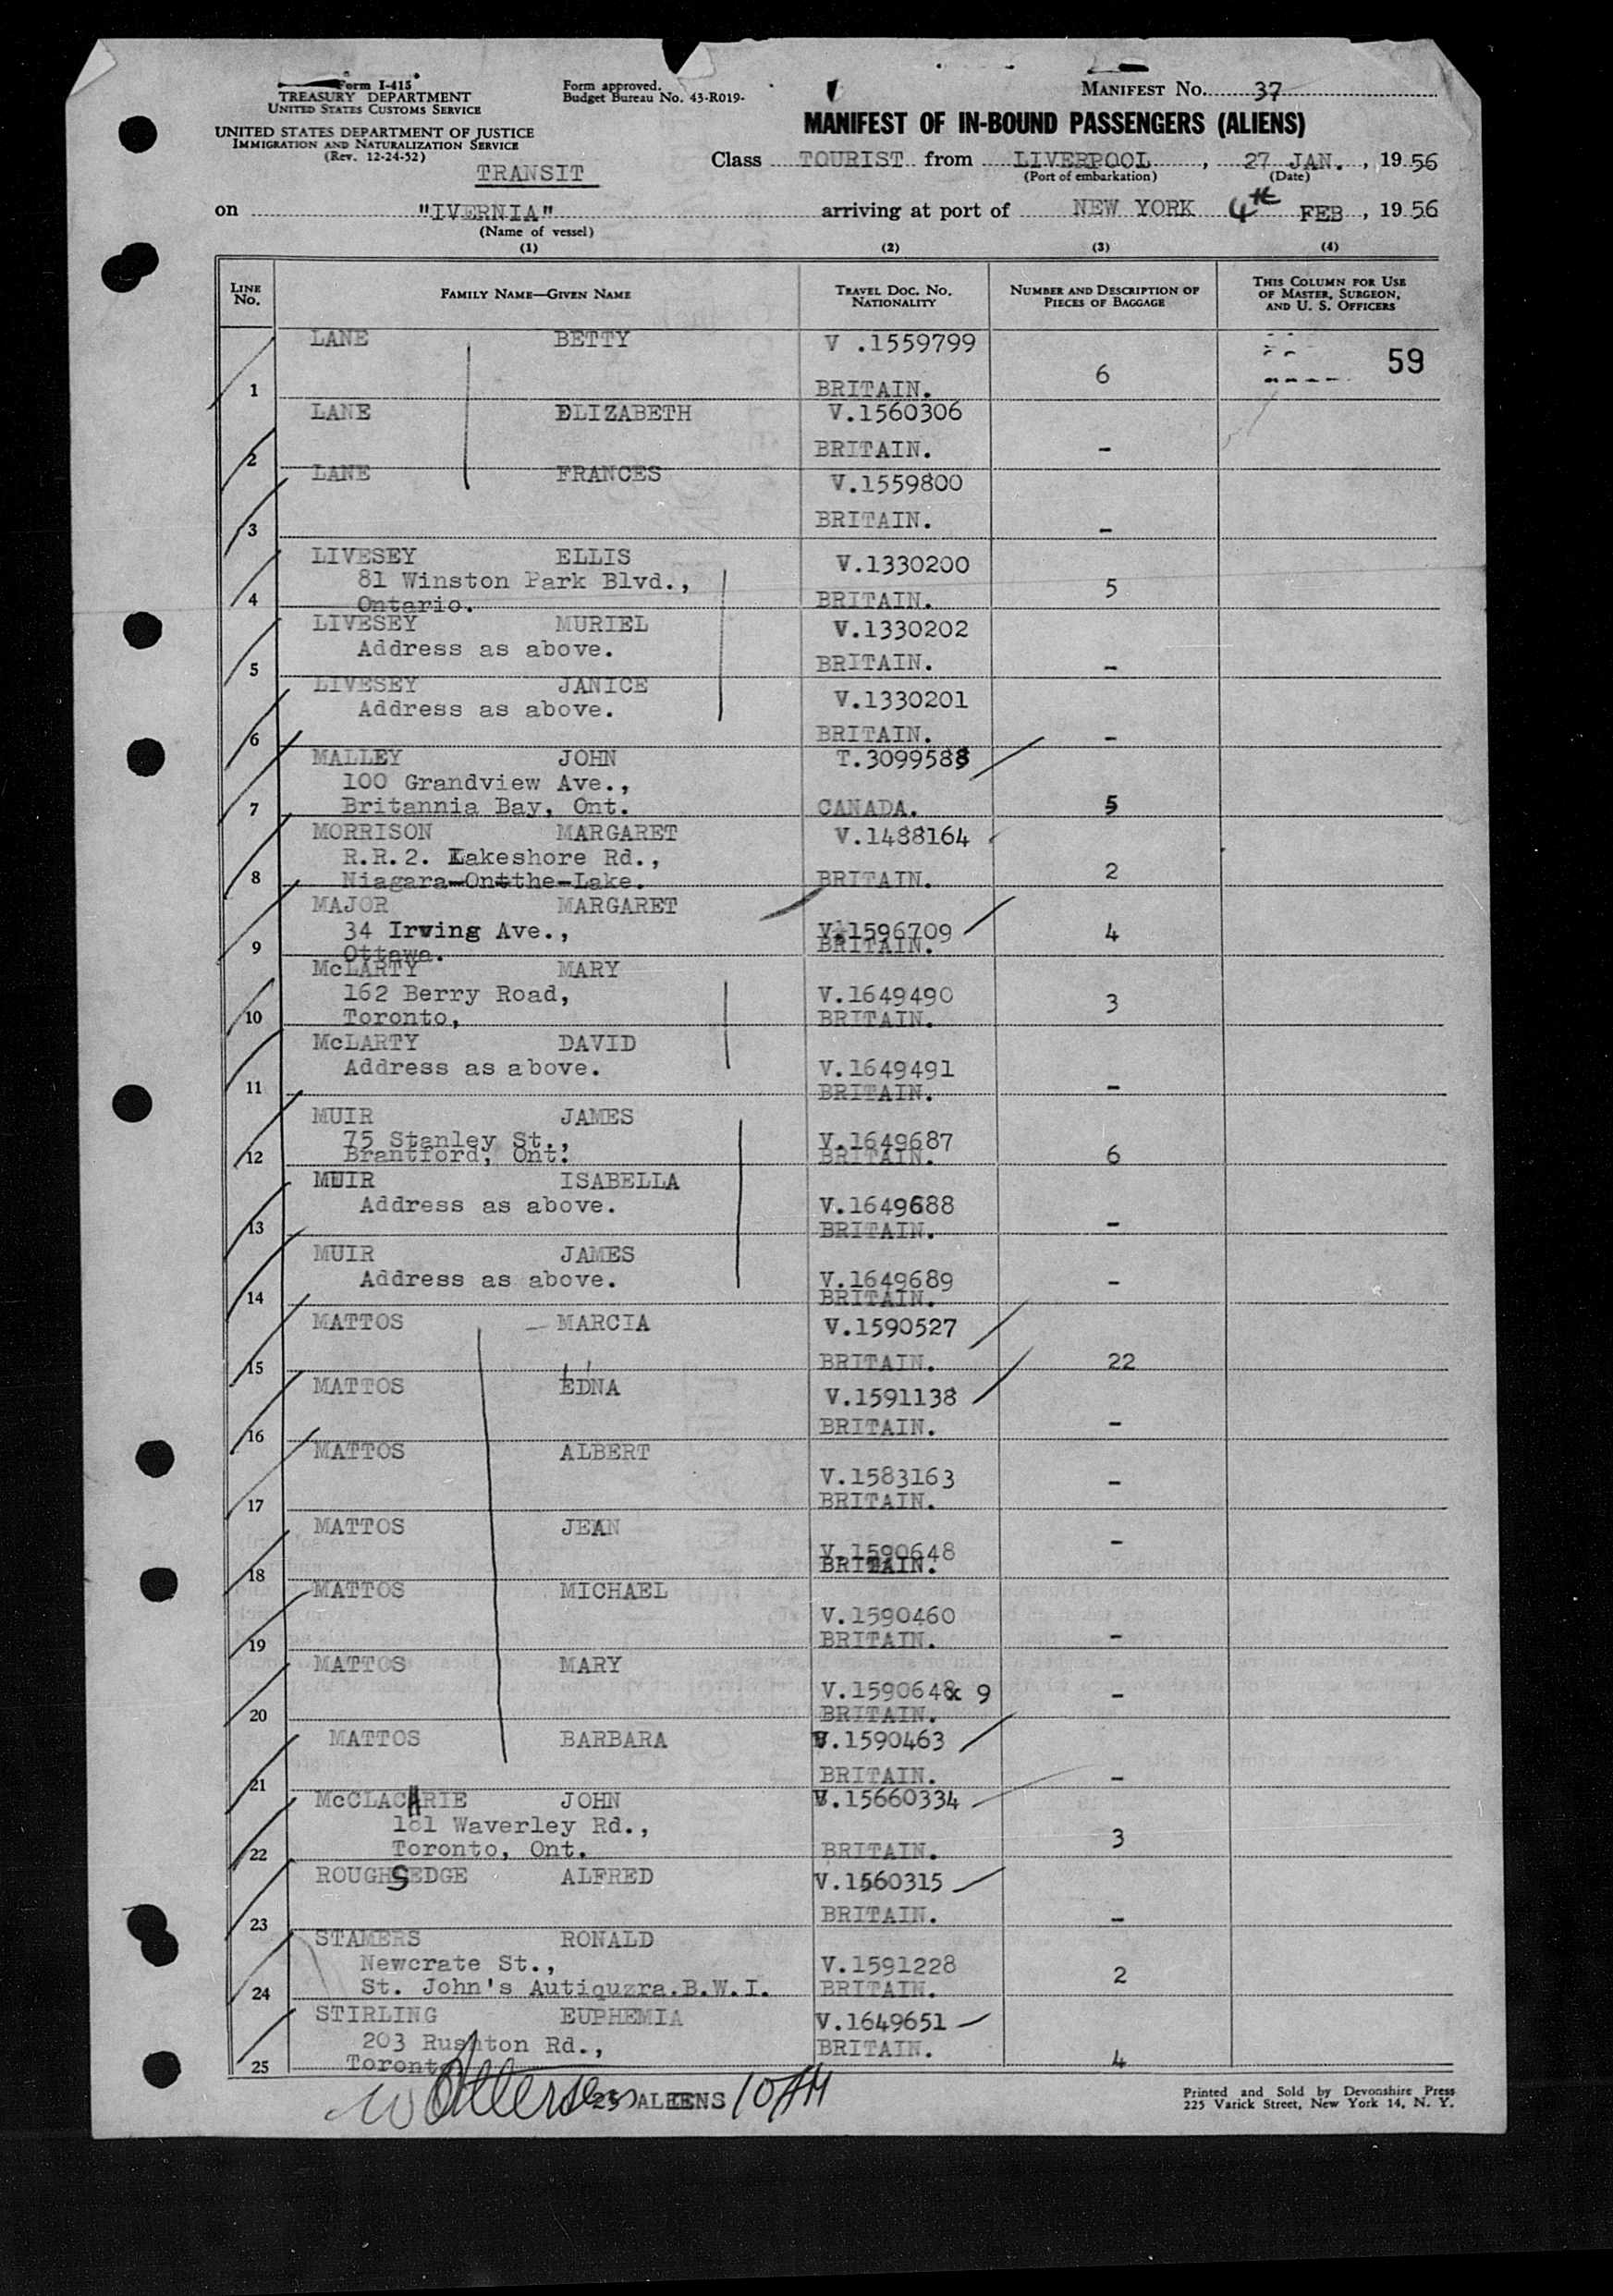 Form I-415
TREASURY DEPARTMENT
UNITED STATES CUSTOMS SERVICE
UNITED STATES DEPARTMENT OF JUSTICE
IMMIGRATION AND NATURALIZATION SERVICE
(Rev. 12-24-52)
TRANSIT
Form approved.
Budget Bureau No. 43-R019-
MANIFEST NO. 37
MANIFEST OF IN-BOUND PASSENGERS (ALIENS)
Class TOURIST from LIVERPOOL, 27 JAN., 1956
(Port of embarkation) (Date)
on "IVERNIA" arriving at port of NEW YORK 4th FEB, 1956
(Name of vessel)
(1) (2) (3) (4)
LINE No. FAMILY NAME—GIVEN NAME TRAVEL DOC. NO. NATIONALITY NUMBER AND DESCRIPTION OF PIECES OF BAGGAGE THIS COLUMN FOR USE OF MASTER, SURGEON, AND U. S. OFFICERS
LANE BETTY V .1559799
59
1 BRITAIN. 6
LANE ELIZABETH V.1560306
2 BRITAIN. -
LANE FRANCES V.1559800
3 BRITAIN. -
LIVESEY ELLIS V.1330200
81 Winston Park Blvd., 5
4 Ontario. BRITAIN.
LIVESEY MURIEL V.1330202
Address as above.
5 BRITAIN. -
LIVESEY JANICE V.1330201
Address as above.
6 BRITAIN. -
MALLEY JOHN T.3099588
100 Grandview Ave.,
7 Britannia Bay, Ont. CANADA. 5
MORRISON MARGARET V.1488164
R.R.2. Lakeshore Rd.,
8 Niagara-On-the-Lake. BRITAIN. 2
MAJOR MARGARET
34 Irving Ave., V.1596709 4
9 Ottawa. BRITAIN.
McLARTY MARY
162 Berry Road, V.1649490 3
10 Toronto, BRITAIN.
McLARTY DAVID
Address as above. V.1649491
11 BRITAIN. -
MUIR JAMES
75 Stanley St., V.1649687
12 Brantford, Ont. BRITAIN. 6
MUIR ISABELLA
Address as above. V.1649688
13 BRITAIN. -
MUIR JAMES
Address as above. V.1649689 -
14 BRITAIN.
MATTOS MARCIA V.1590527
15 BRITAIN. 22
MATTOS EDNA V.1591138
16 BRITAIN. -
MATTOS ALBERT
V.1583163 -
17 BRITAIN.
MATTOS JEAN
V.1590648 -
18 BRITAIN.
MATTOS MICHAEL
V.1590460
19 BRITAIN. -
MATTOS MARY
V.1590648x 9 -
20 BRITAIN.
MATTOS BARBARA V.1590463
21 BRITAIN. -
McCLACHRIE JOHN V.15660334
181 Waverley Rd.,
22 Toronto, Ont. BRITAIN. 3
ROUGHSEDGE ALFRED V.1560315
23 BRITAIN. -
STAMERS RONALD
Newcrate St., V.1591228
24 St. John's Autiquzra.B.W.I. BRITAIN. 2
STIRLING EUPHEMIA V.1649651
203 Rushton Rd., BRITAIN.
25 Toronto 4
25 ALIENS 10AM
Printed and Sold by Devonshire Press
225 Varick Street, New York 14, N. Y.